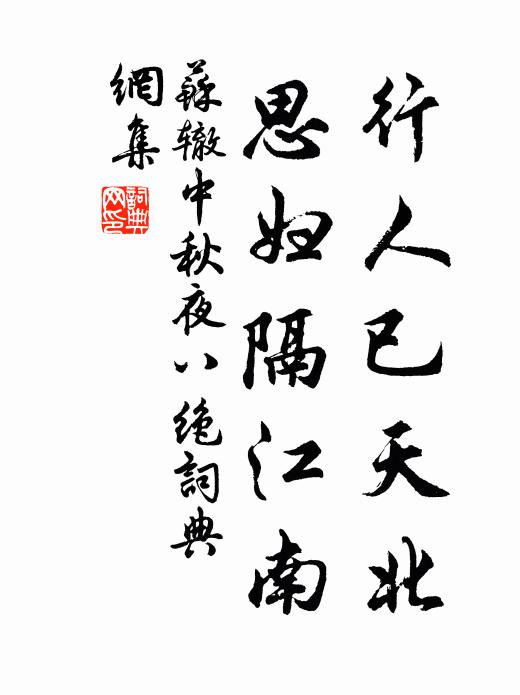 行人已天北
思妇隔江南
蘇辙中秋夜八绝詞典
網集
詞典网印